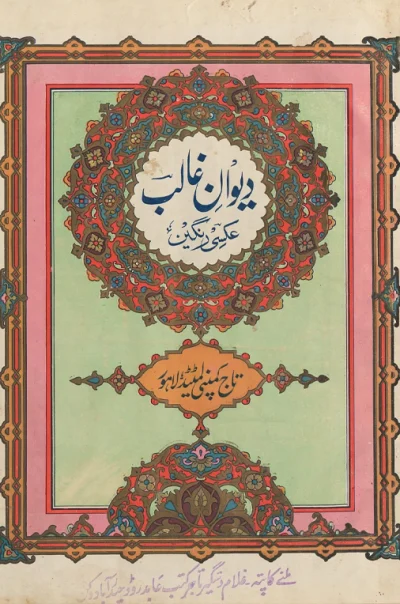 دیوانِ غالب
عکسی رنگین
تاج کمپنی لمیٹڈ لاہور
ملنے کا پتہ۔ غلام دستگیر تاجر کتب عابد روڈ حیدرآباد دکن